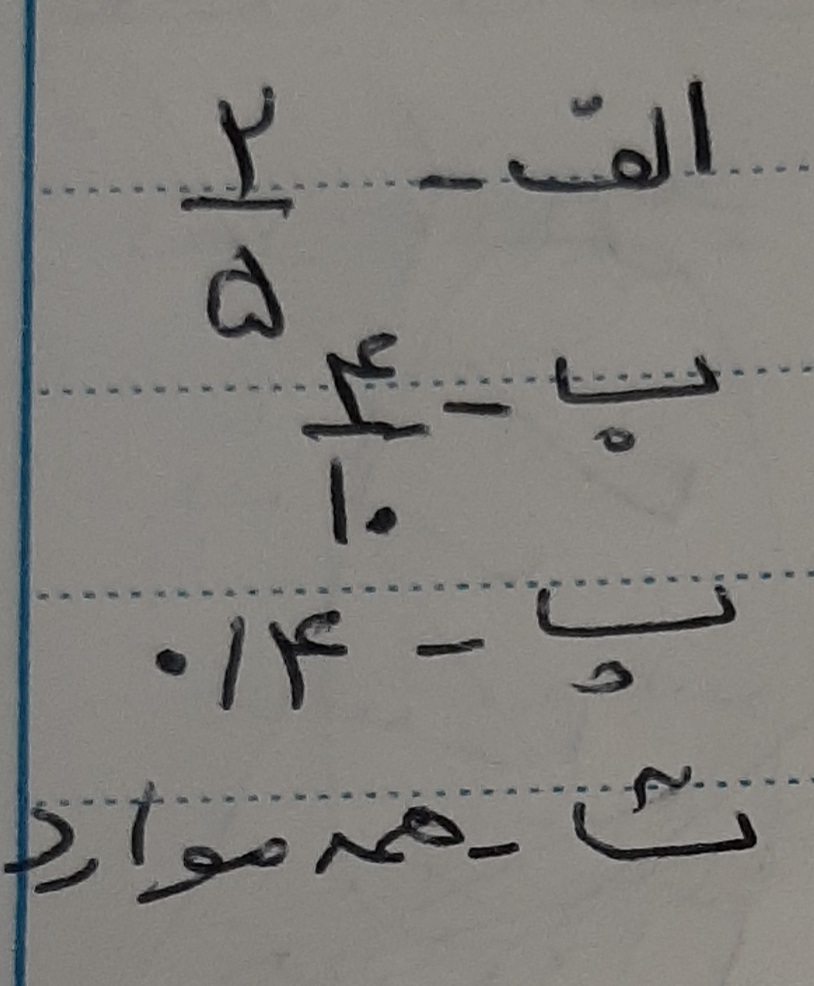 الف - ۲/۵
ب - ۴/۱۰
پ - ۰/۴
ت - همه موارد